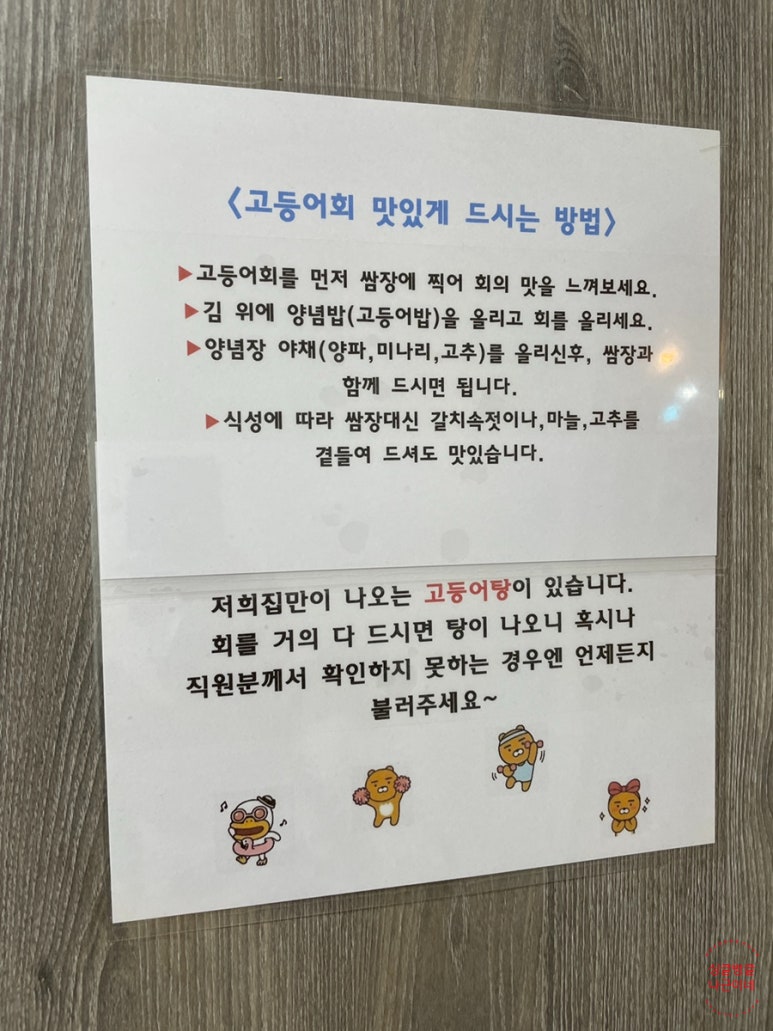 <고등어회 맛있게 드시는 방법>
▶고등어회를 먼저 쌈장에 찍어 회의 맛을 느껴보세요.
▶김 위에 양념밥(고등어밥)을 올리고 회를 올리세요.
▶양념장 야채(양파,미나리,고추)를 올리신후, 쌈장과
함께 드시면 됩니다.
▶식성에 따라 쌈장대신 갈치속젓이나,마늘,고추를
곁들여 드셔도 맛있습니다.
저희집만이 나오는 고등어탕이 있습니다.
회를 거의 다 드시면 탕이 나오니 혹시나
직원분께서 확인하지 못하는 경우엔 언제든지
불러주세요~